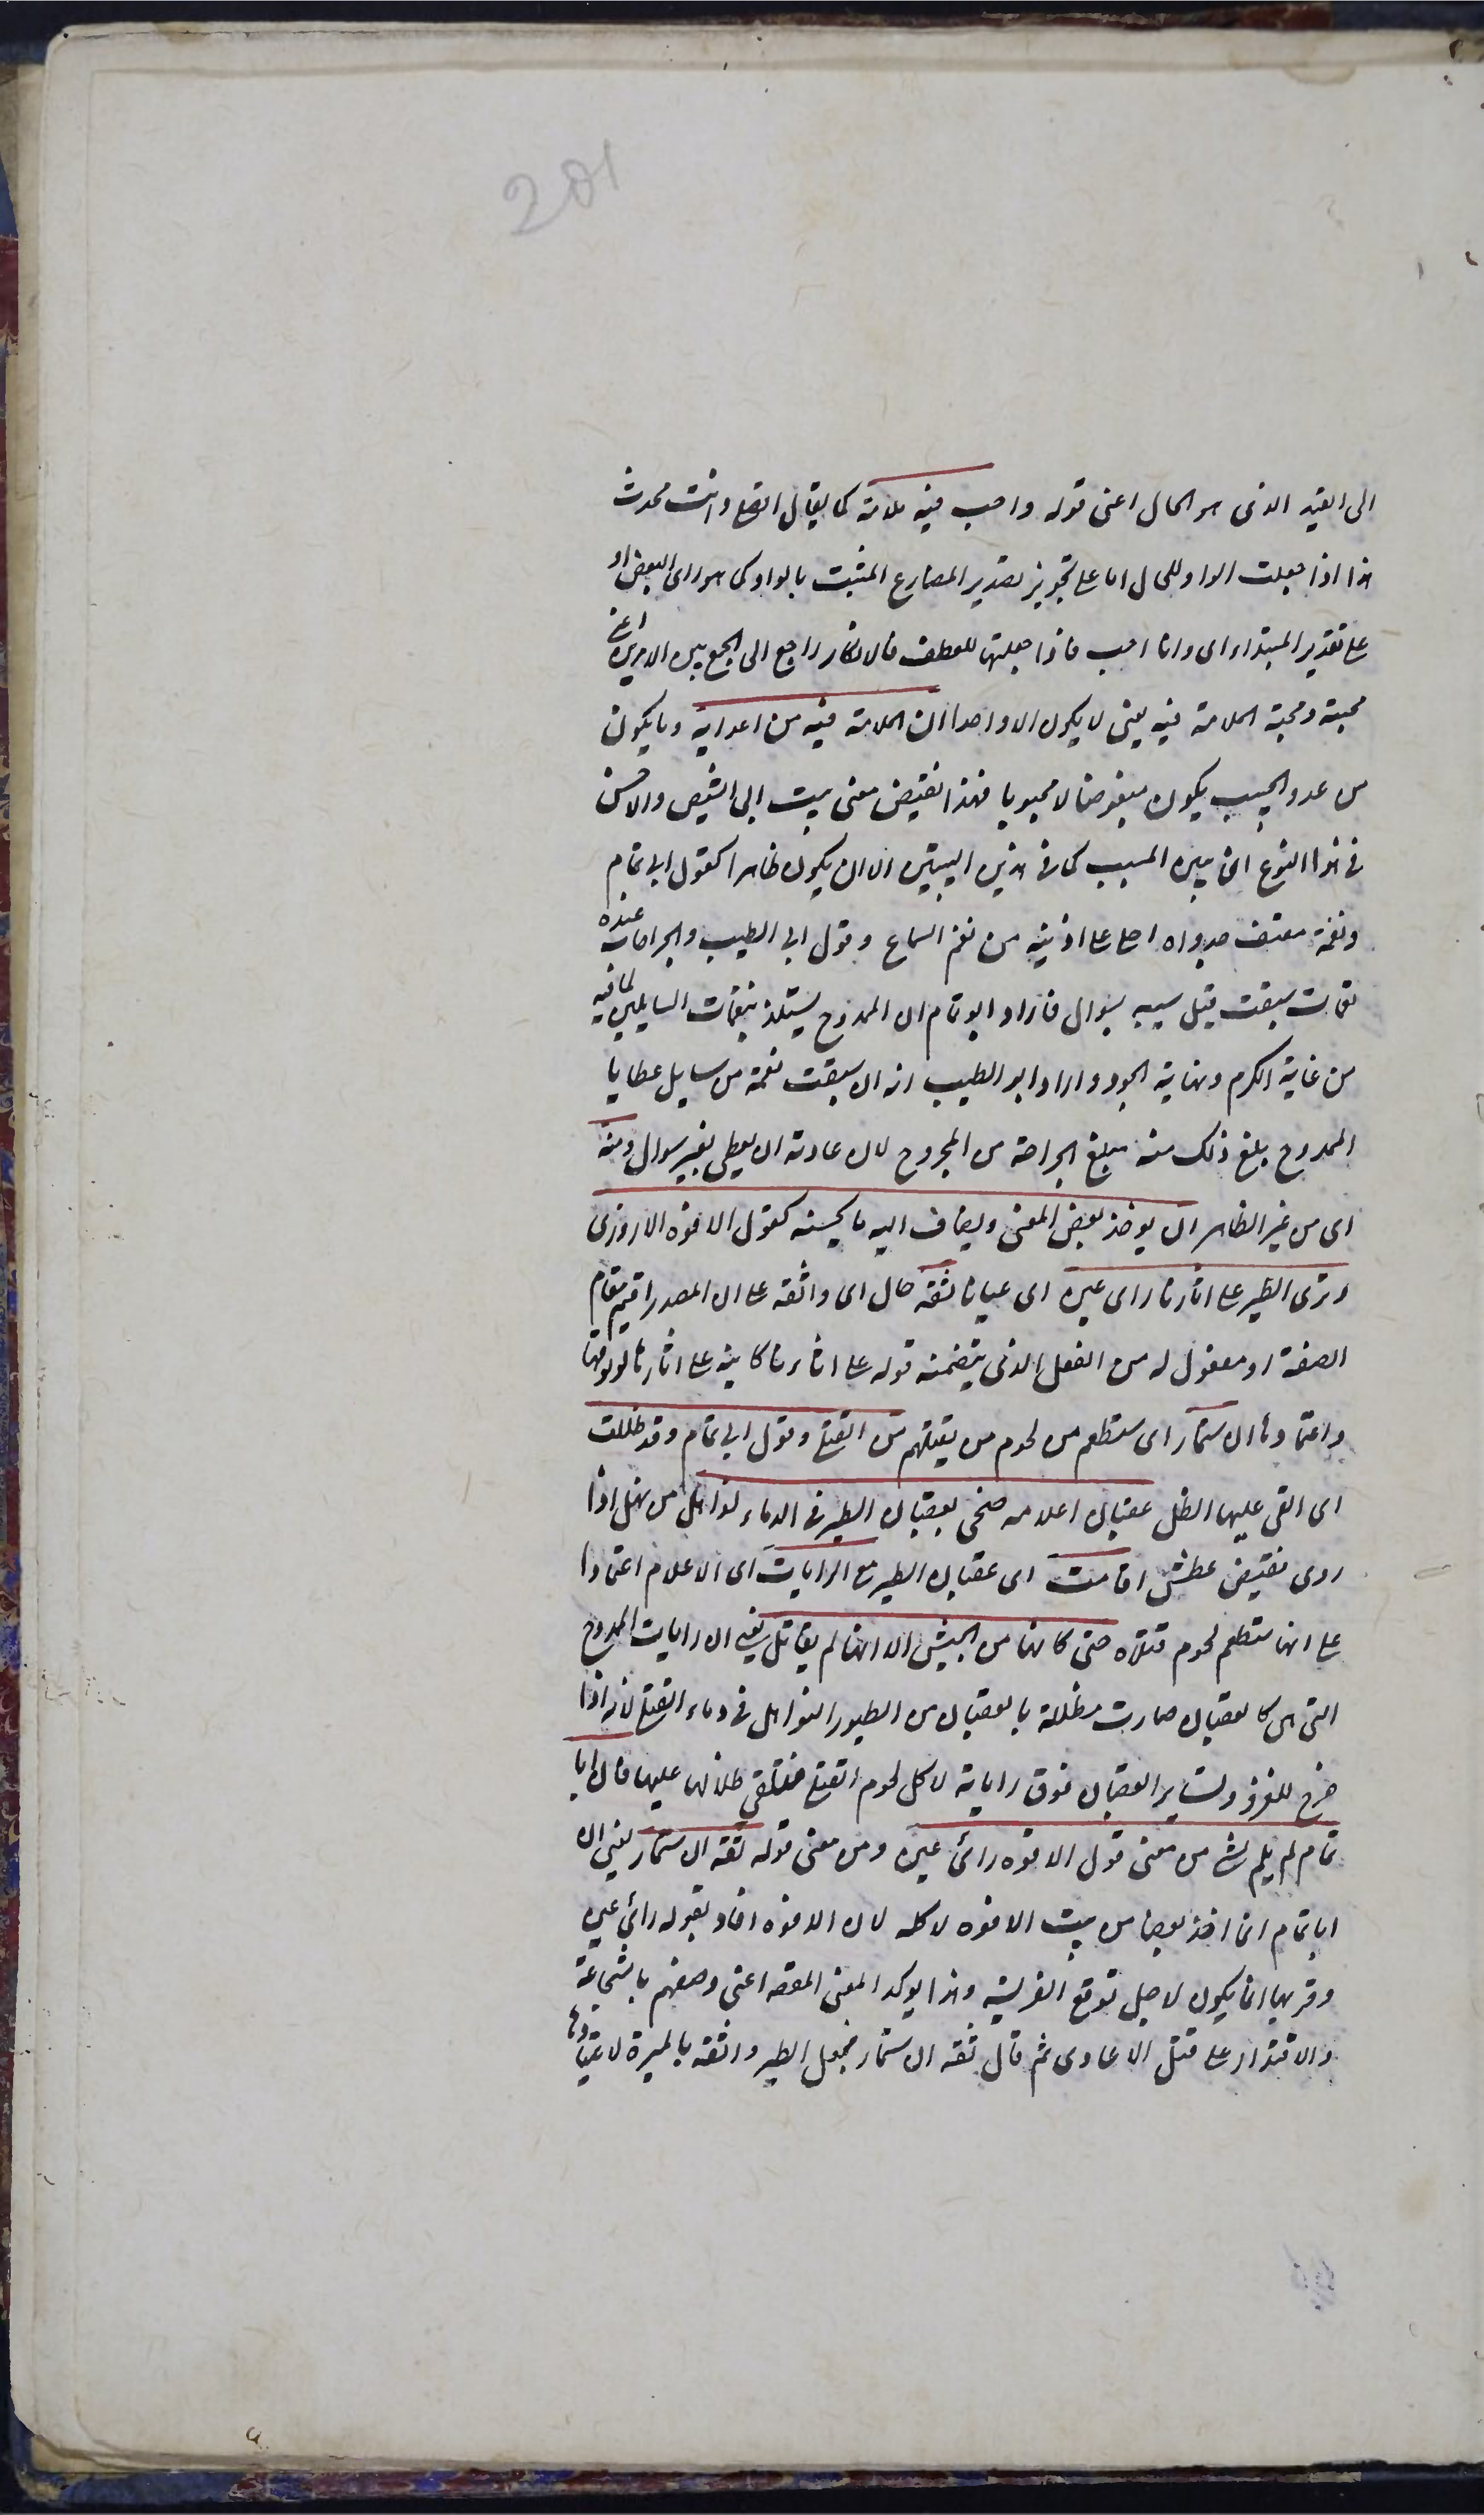 201
الى القيد الذى هو الحال اعنى قوله واحب فيه ملامة كما يقال اتصلى وانت محدث
هذا اذا جعلت الواو للحال اما على تجويز تصدير المضارع المثبت بالواو كما هو راى البعض او
على تقدير المبتداء اى وانا احب فاذا جعلتها للعطف فالانكار راجع الى الجمع بين الامرين اعنى
محبته ومحبة الملامة فيه يعنى لا يكون الا واحدا ان الملامة فيه من اعدايه وما يكون
من عدو الحبيب يكون مبغوضا لا محبوبا فهذا نقيض معنى بيت ابى الشيص والاحسن
فى هذا النوع ان يبين السبب كما فى هذين البيتين الا ان يكون ظاهرا كقول ابى تمام
ونغمة معتف جدواه احلى على اذنيه من نغم السماع وقول ابى الطيب والجراحات عنده
نغمات سبقت قبل سيبه بسوال فاراد ابو تمام ان الممدوح يستلذ بنغمات السايلين لما فيه
من غاية الكرم ونهاية الجود واراد ابو الطيب انه ان سبقت نغمة من سايل عطايا
الممدوح بلغ ذلك منه مبلغ الجراحة من المجروح لان عادته ان يعطى بغير سوال ومنه
اى من غير الظاهر ان يوخذ بعض المعنى ويضاف اليه ما يحسنه كقول الافوه الاروزى
وترى الطير على اثارنا راى عين اى عيانا ثقة حال اى واثقة على ان المصدر اقيم مقام
الصفة او مفعول له من الفعل الذى يتضمنه قوله على اثارنا كاينة على اثارنا لوثوقها
واعتمادها ان ستمار اى ستطعم من لحوم من يقتلهم من القتلى وقول ابى تمام وقد ظللت
اى القى عليها الظل عقبان اعلامه ضحى بعقبان الطير فى الدماء نواهل من نهل اذا
روى نقيض عطش اقامت اى عقبان الطير مع الرايات اى الاعلام اعتمادا
على انها ستطعم لحوم قتلاه حتى كانها من الجيش الا انها لم يقاتل يعنى ان رايات الممدوح
التى هى كالعقبان صارت مظللة بالعقبان من الطيور النواهل فى دماء القتلى لانه اذا
خرج للغزو ولتساير العقبان فوق راياته لاكل لحوم القتلى فتلقى ظلالها عليها فان ابا
تمام لم يلم بشى من معنى قول الافوه رائ عين ومن معنى قوله ثقة ان ستمار يعنى ان
ابا تمام انما اخذ بعضا من بيت الافوه لا كله لان الافوه افاد بقوله رائ عين
وقربها انما يكون لاجل توقع الفريسة وهذا يوكد المعنى المقصود اعنى وصفهم بالشجاعة
والاقتدار على قتل الاعادى ثم قال ثقة ان ستمار فجعل الطير واثقة بالميرة لاعتيادها